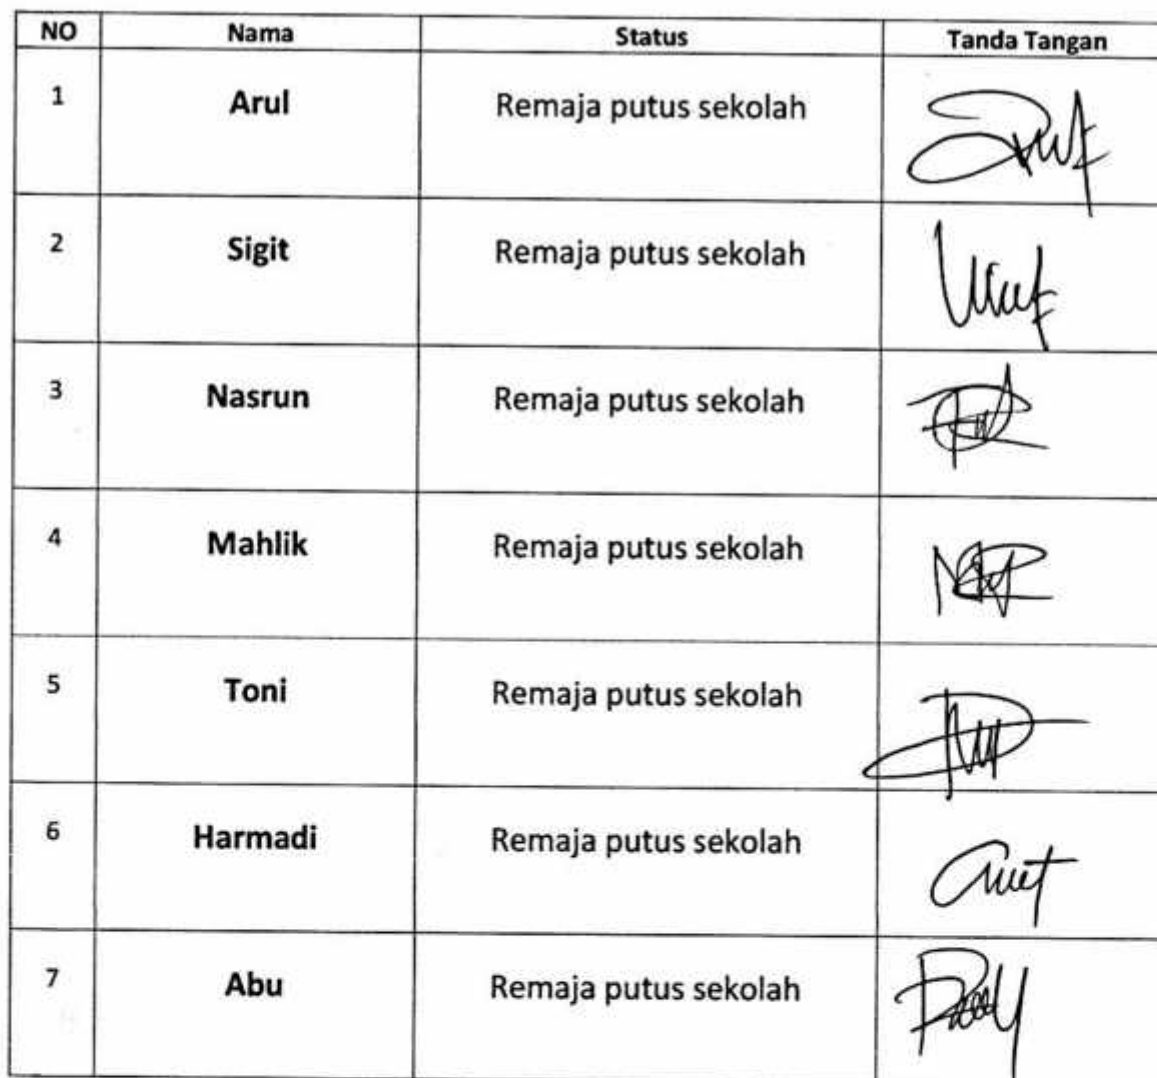 NO Nama Status Tanda Tangan
1 Arul Remaja putus sekolah
2 Sigit Remaja putus sekolah
3 Nasrun Remaja putus sekolah
4 Mahlik Remaja putus sekolah
5 Toni Remaja putus sekolah
6 Harmadi Remaja putus sekolah
7 Abu Remaja putus sekolah